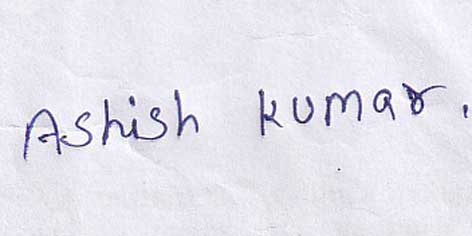 Ashish kumar.